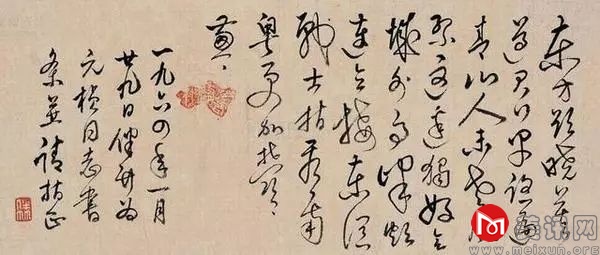 东方欲晓莫
道君行早踏遍
青山人未老风
景这边独好会
昌城外高峰颠
连直接东溟
战士指看南
粤更加郁郁
葱葱
一九六四年一月
廿九日 为
元桢同志书
条并请指正
美讯网
www.meixun.org